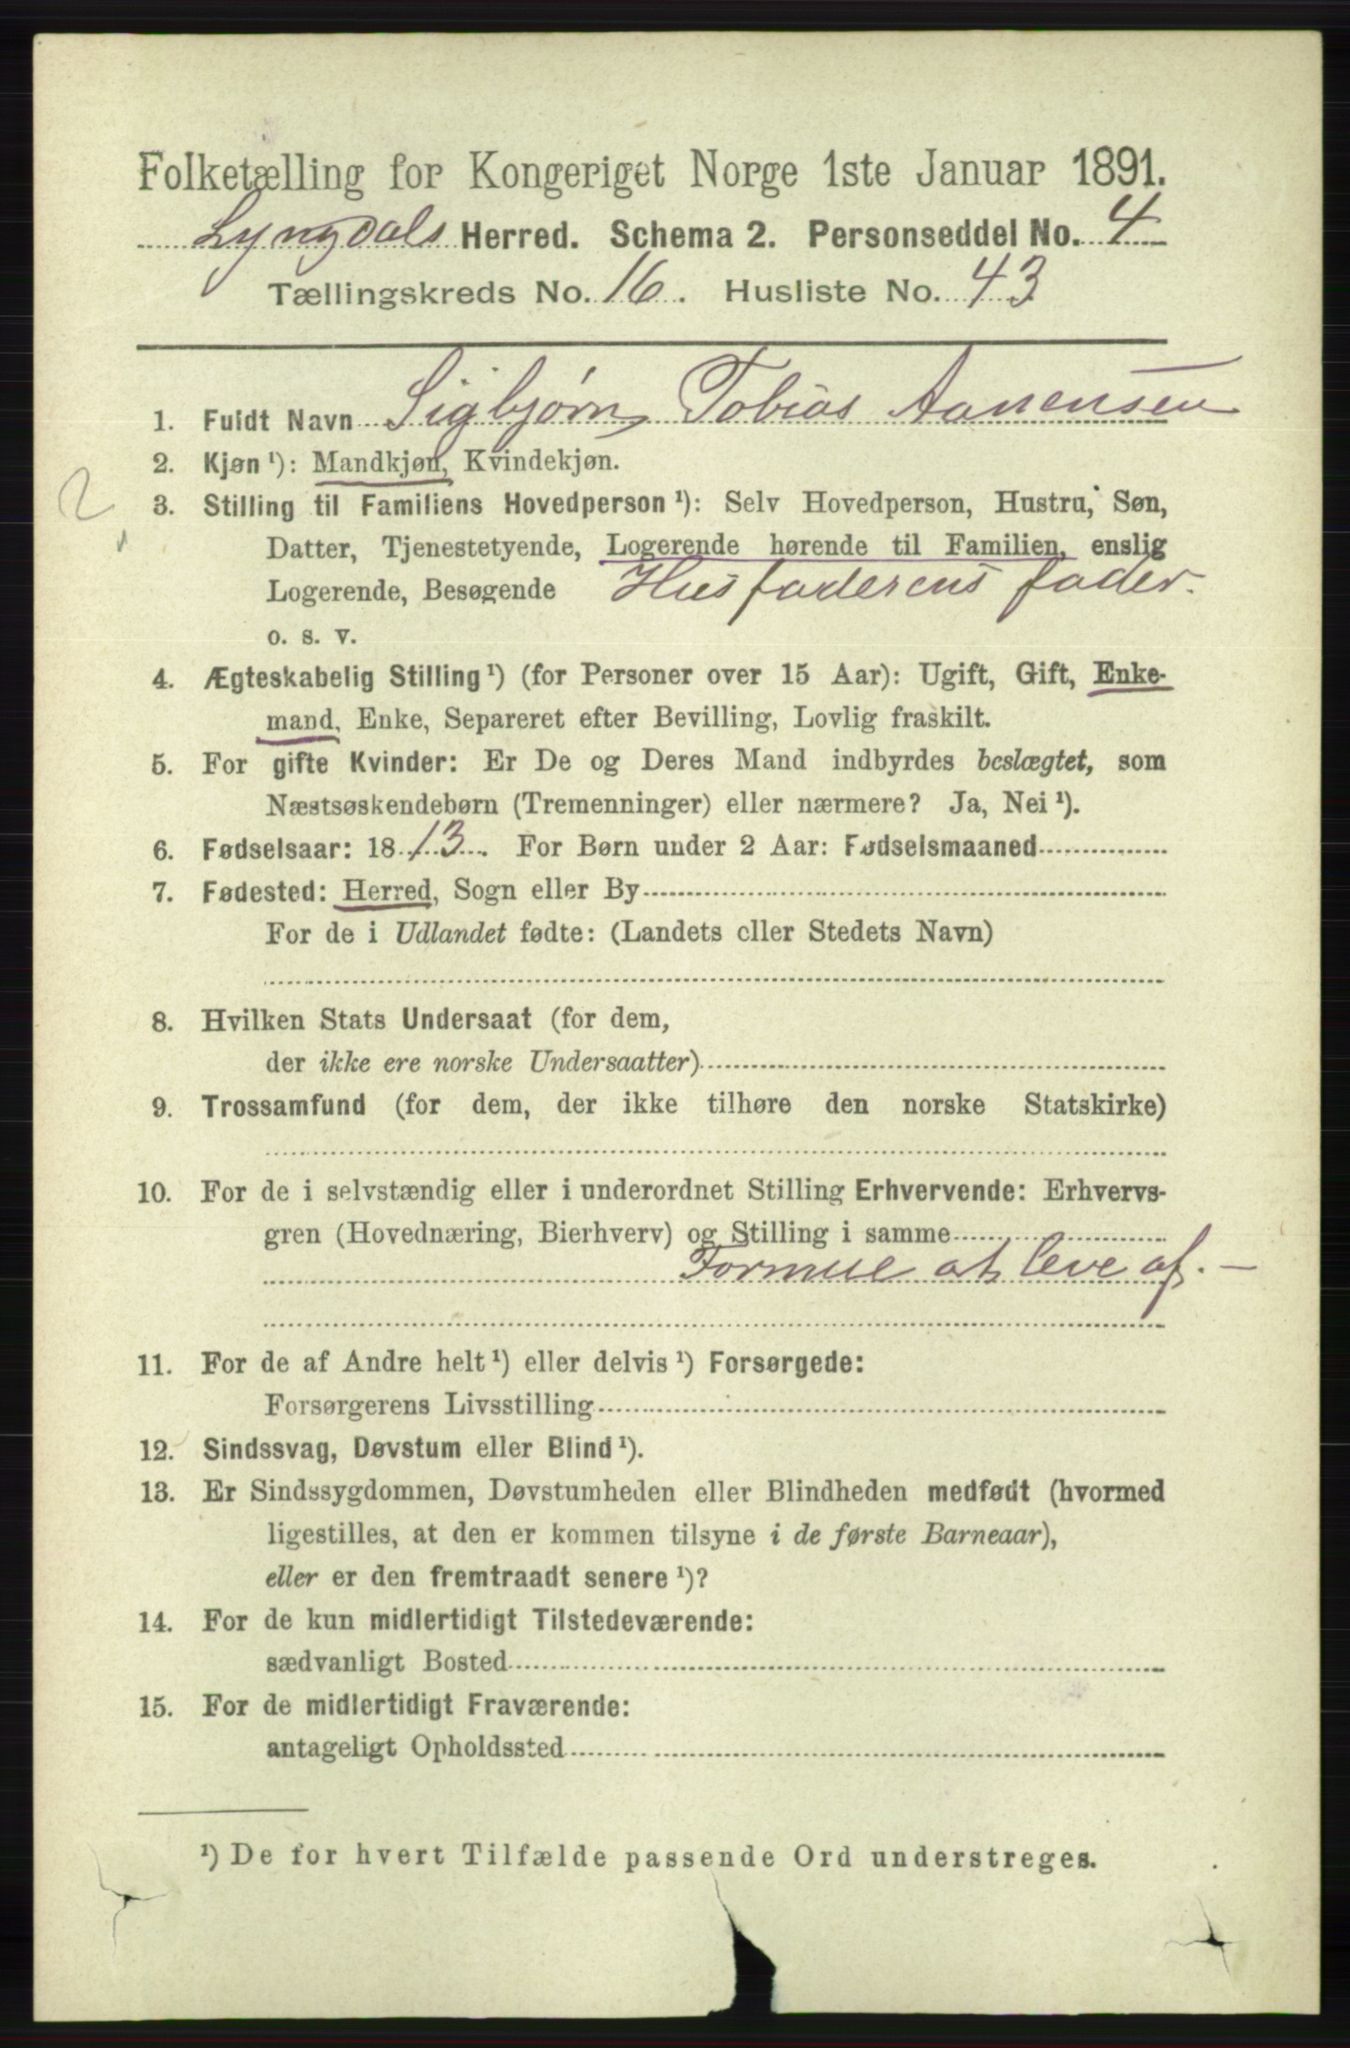 Folketælling for Kongeriget Norge 1ste Januar 1891.
Lyngdals Herred. Schema 2. Personseddel No. 4
Tællingskreds No. 16. Husliste No. 43
1. Fuldt Navn Sigbjørn Tobias Aanensen
2. Kjøn ¹): Mandkjøn, Kvindekjøn.
2
3. Stilling til Familiens Hovedperson ¹): Selv Hovedperson, Hustru, Søn,
Datter, Tjenestetyende, Logerende hørende til Familien, enslig
Logerende, Besøgende Husfaderens fader.
o. s. v.
4. Ægteskabelig Stilling ¹) (for Personer over 15 Aar): Ugift, Gift, Enke-
mand, Enke, Separeret efter Bevilling, Lovlig fraskilt.
5. For gifte Kvinder: Er De og Deres Mand indbyrdes beslægtet, som
Næstsøskendebørn (Tremenninger) eller nærmere? Ja, Nei ¹).
6. Fødselsaar: 1813. For Børn under 2 Aar: Fødselsmaaned
7. Fødested: Herred, Sogn eller By
For de i Udlandet fødte: (Landets eller Stedets Navn)
8. Hvilken Stats Undersaat (for dem,
der ikke ere norske Undersaatter)
9. Trossamfund (for dem, der ikke tilhøre den norske Statskirke)
10. For de i selvstændig eller i underordnet Stilling Erhvervende: Erhvervs-
gren (Hovednæring, Bierhverv) og Stilling i samme
Formue at leve af. —
11. For de af Andre helt ¹) eller delvis ¹) Forsørgede:
Forsørgerens Livsstilling
12. Sindssvag, Døvstum eller Blind ¹).
13. Er Sindssygdommen, Døvstumheden eller Blindheden medfødt (hvormed
ligestilles, at den er kommen tilsyne i de første Barneaar),
eller er den fremtraadt senere ¹)?
14. For de kun midlertidigt Tilstedeværende:
sædvanligt Bosted
15. For de midlertidigt Fraværende:
antageligt Opholdssted
¹) De for hvert Tilfælde passende Ord understreges.